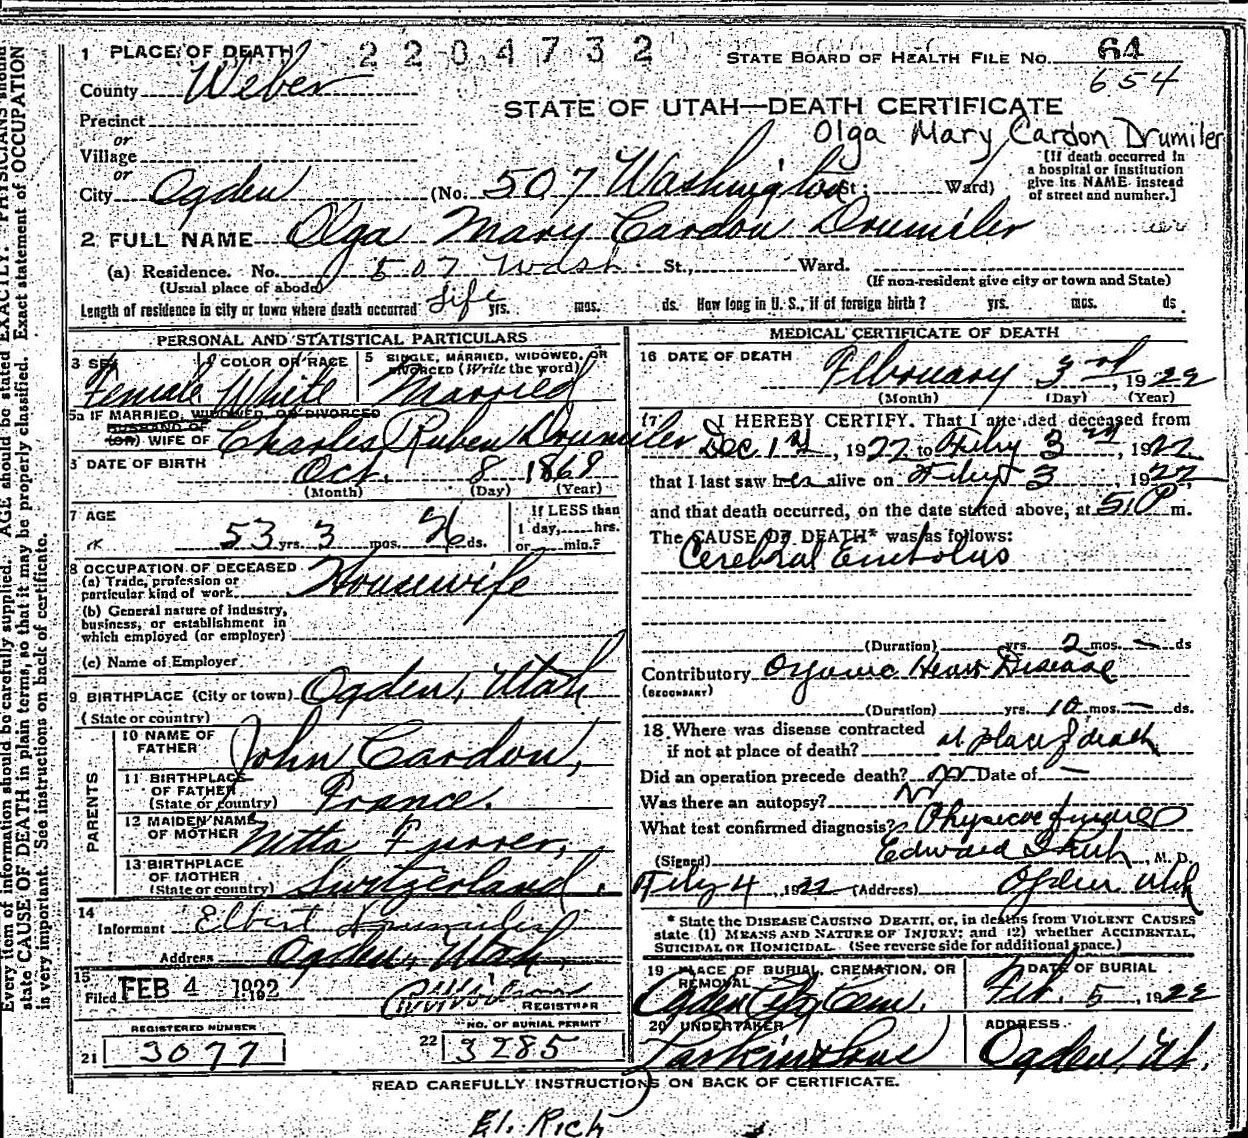 1 PLACE OF DEATH 2204732 STATE BOARD OF HEALTH FILE No. 64
County Weber 654
STATE OF UTAH—DEATH CERTIFICATE
Precinct
Olga Mary Cardon Drumiler
or
Village
or
City Ogden (No. 507 Washington St; Ward)
[If death occurred in
a hospital or institution
give its NAME instead
of street and number.]
2 FULL NAME Olga Mary Cardon Drumiler
(a) Residence. No. 507 Wash. St., Ward.
(Usual place of abode) (If non-resident give city or town and State)
Length of residence in city or town where death occurred Life yrs. mos. ds. How long in U. S., if of foreign birth? yrs. mos. ds
PERSONAL AND STATISTICAL PARTICULARS
3 SEX Female
4 COLOR OR RACE White
5 SINGLE, MARRIED, WIDOWED, OR
DIVORCED (Write the word)
Married
5a IF MARRIED, WIDOWED, OR DIVORCED
HUSBAND OF
(OR) WIFE OF Charles Ruben Drumiler
DATE OF BIRTH Oct. 8 1868
(Month) (Day) (Year)
7 AGE 53 yrs. 3 mos. 26 ds.
If LESS than
1 day, hrs.
or min.?
8 OCCUPATION OF DECEASED
(a) Trade, profession or
particular kind of work Housewife
(b) General nature of industry,
business, or establishment in
which employed (or employer)
(c) Name of Employer
9 BIRTHPLACE (City or town) Ogden, Utah
(State or country)
PARENTS
10 NAME OF
FATHER John Cardon,
11 BIRTHPLACE
OF FATHER
(State or country) France.
12 MAIDEN NAME
OF MOTHER Furrer,
13 BIRTHPLACE
OF MOTHER
(State or country) Switzerland.
14
Informant Elbert Drumiler
Address Ogden, Utah.
15
Filed FEB 4 1922 REGISTRAR
REGISTERED NUMBER
21 3077
NO. OF BURIAL PERMIT
22 3285
MEDICAL CERTIFICATE OF DEATH
16 DATE OF DEATH
February 3rd, 1922
(Month) (Day) (Year)
17 I HEREBY CERTIFY. That I attended deceased from
Dec 1st, 1922 to Feby 3rd, 1922
that I last saw her alive on Feby 3 1922
and that death occurred, on the date stated above, at 510 P m.
The CAUSE OF DEATH* was as follows:
Cerebral Embolus
(Duration) yrs. 2 mos. — ds
Contributory Organic Heart Disease
(SECONDARY)
(Duration) yrs. 10 mos. — ds.
18 Where was disease contracted
if not at place of death? at place of death
Did an operation precede death? no Date of —
Was there an autopsy? No
What test confirmed diagnosis? Physical
(Signed) Edward, M. D.
Feby 4, 1922 (Address) Ogden Utah
* State the DISEASE CAUSING DEATH, or, in deaths from VIOLENT CAUSES
state (1) MEANS AND NATURE OF INJURY; and (2) whether ACCIDENTAL,
SUICIDAL OR HOMICIDAL. (See reverse side for additional space.)
19 PLACE OF BURIAL, CREMATION, OR
REMOVAL
Ogden City Cem.
DATE OF BURIAL
Feb. 5, 1922
20 UNDERTAKER
Larkin & Sons
ADDRESS
Ogden, Ut.
READ CAREFULLY INSTRUCTIONS ON BACK OF CERTIFICATE.
El. Rich
Every item of information should be carefully supplied. AGE should be stated EXACTLY. PHYSICIANS should
state CAUSE OF DEATH in plain terms, so that it may be properly classified. Exact statement of OCCUPATION
is very important. See instructions on back of certificate.